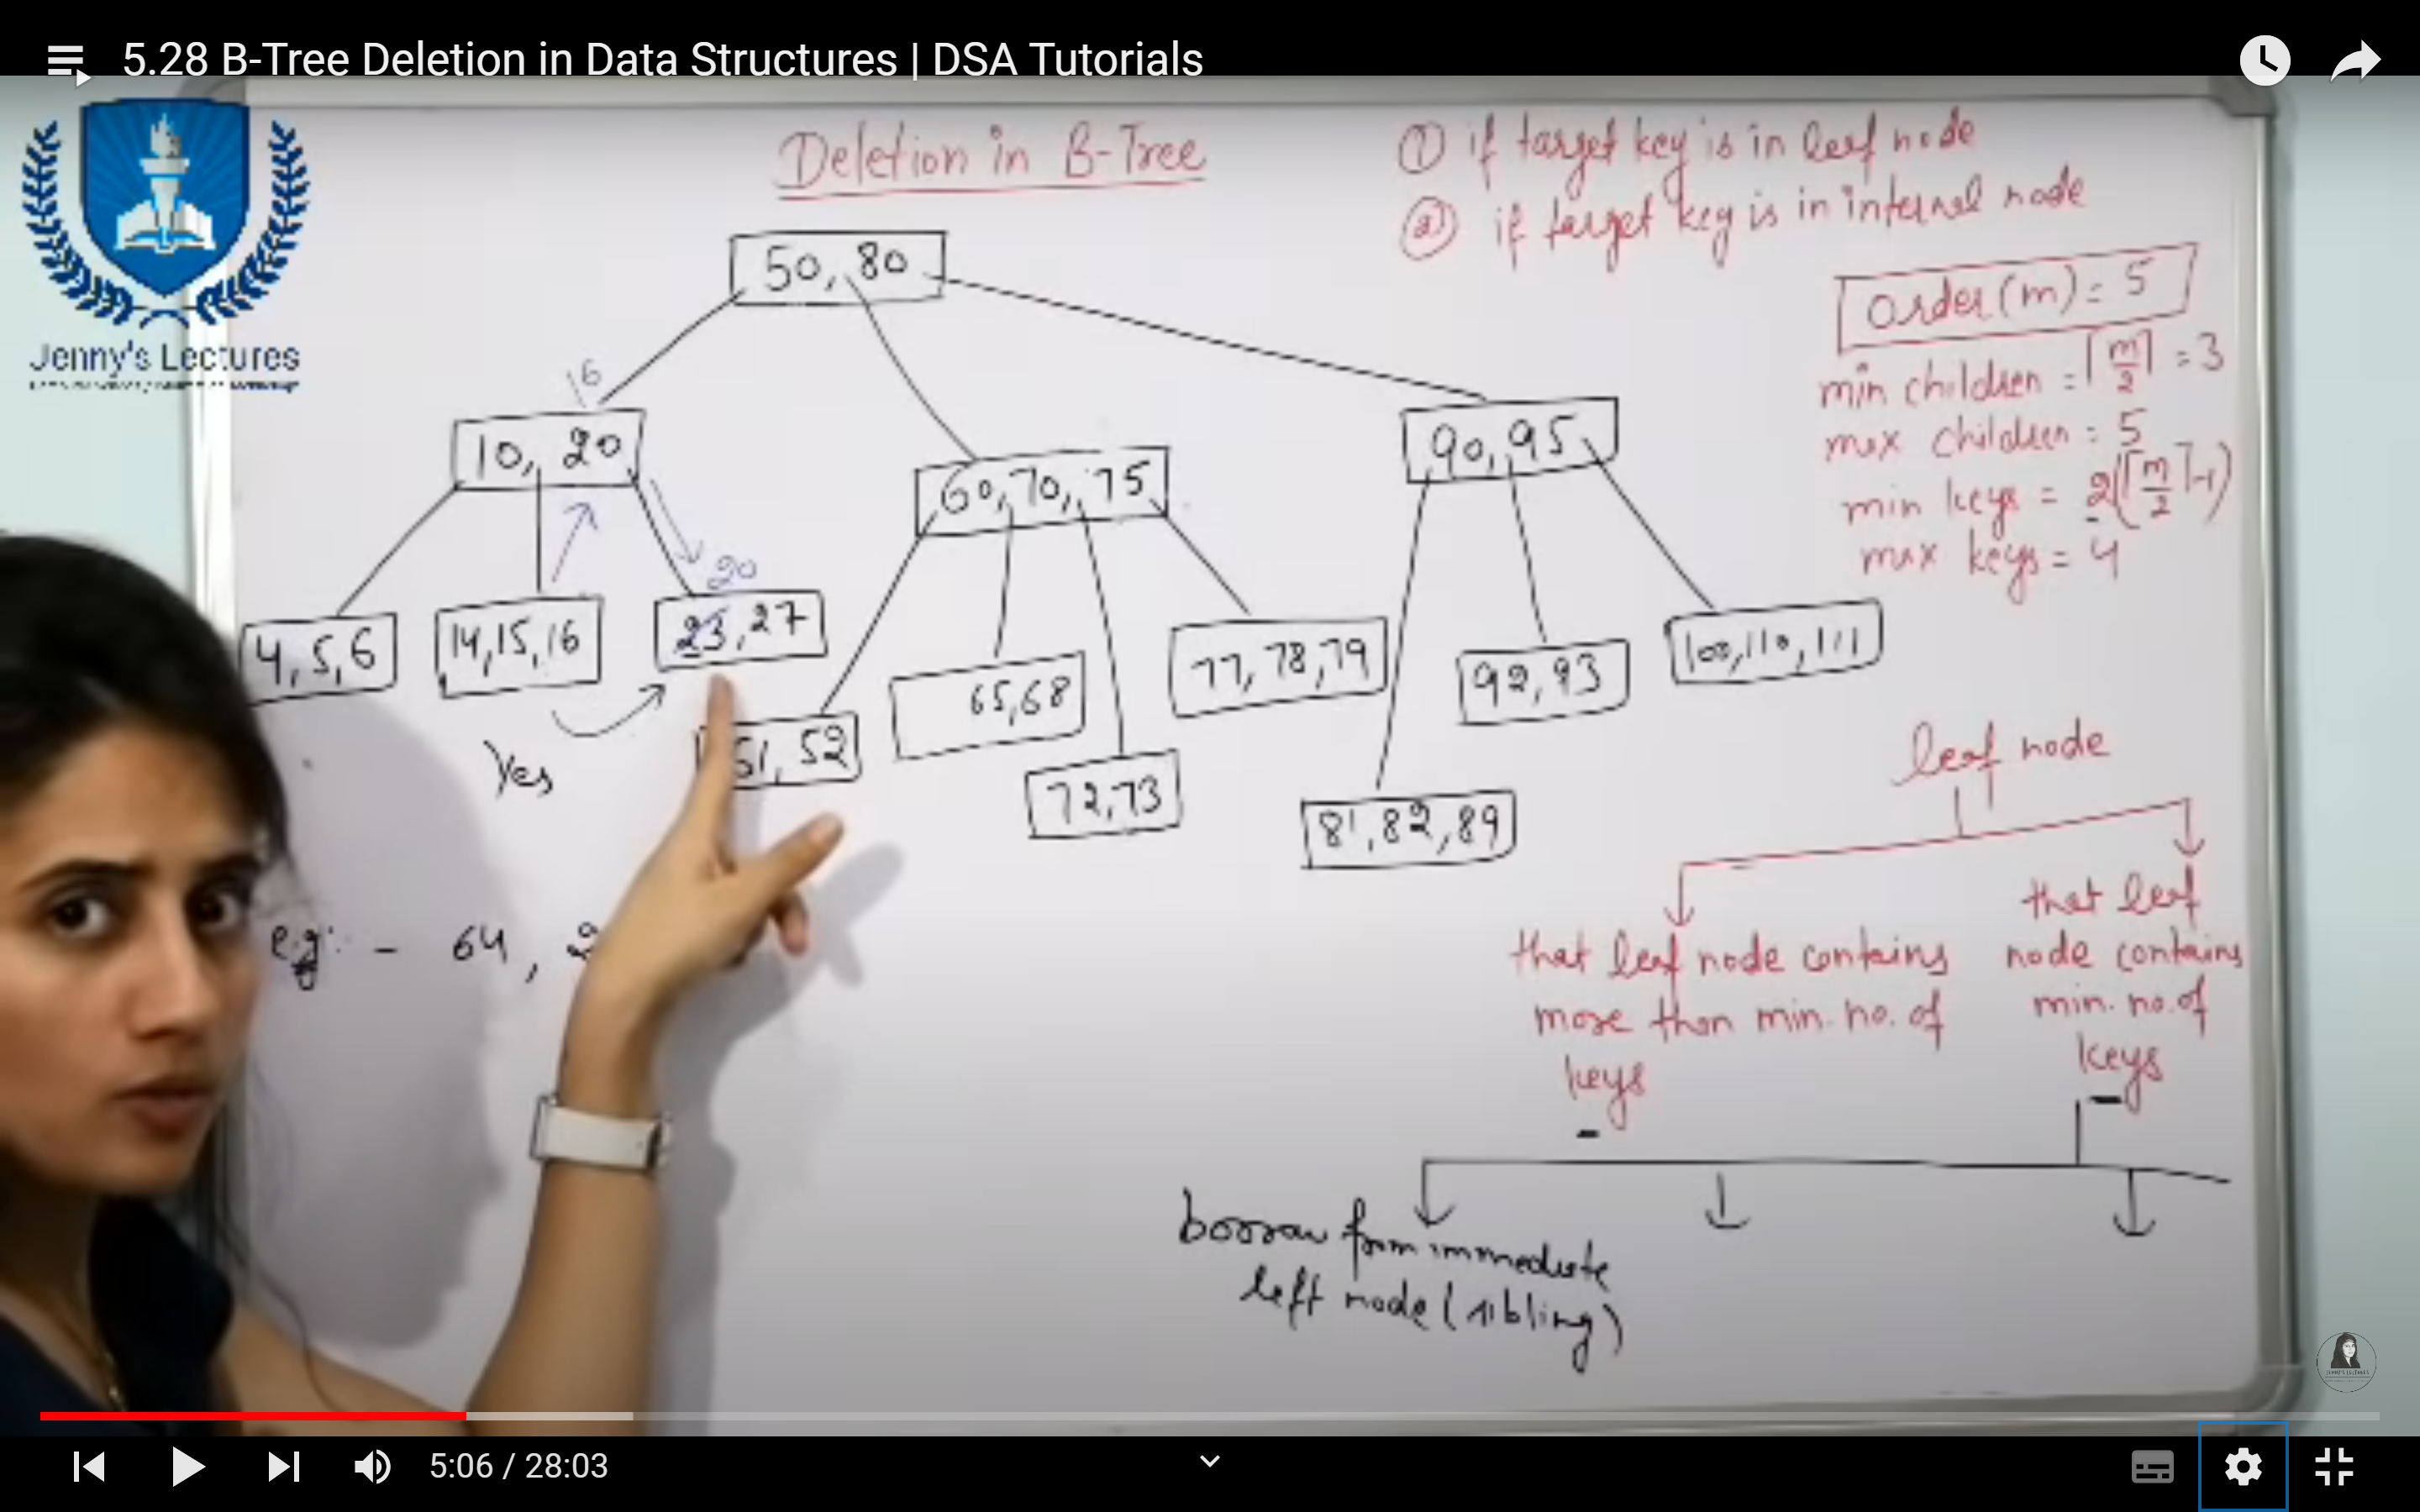 5.28 B-Tree Deletion in Data Structures | DSA Tutorials
Jenny's Lectures
Deletion in B-Tree
① if target key is in leaf node
② if target key is in internal node
Order(m) = 5
min children = ⌈m/2⌉ = 3
max children = 5
min keys = 2(⌈m/2⌉-1)
max keys = 4
50, 80
16
10, 20
60, 70, 75
90, 95
20
4, 5, 6
14, 15, 16
23, 27
51, 52
65, 68
72, 73
77, 78, 79
81, 82, 89
92, 93
100, 110, 111
Yes
e.g:- 64,
leaf node
that leaf node contains
more than min. no. of
keys
that leaf
node contains
min. no. of
keys
borrow from immediate
left node (sibling)
5:06 / 28:03